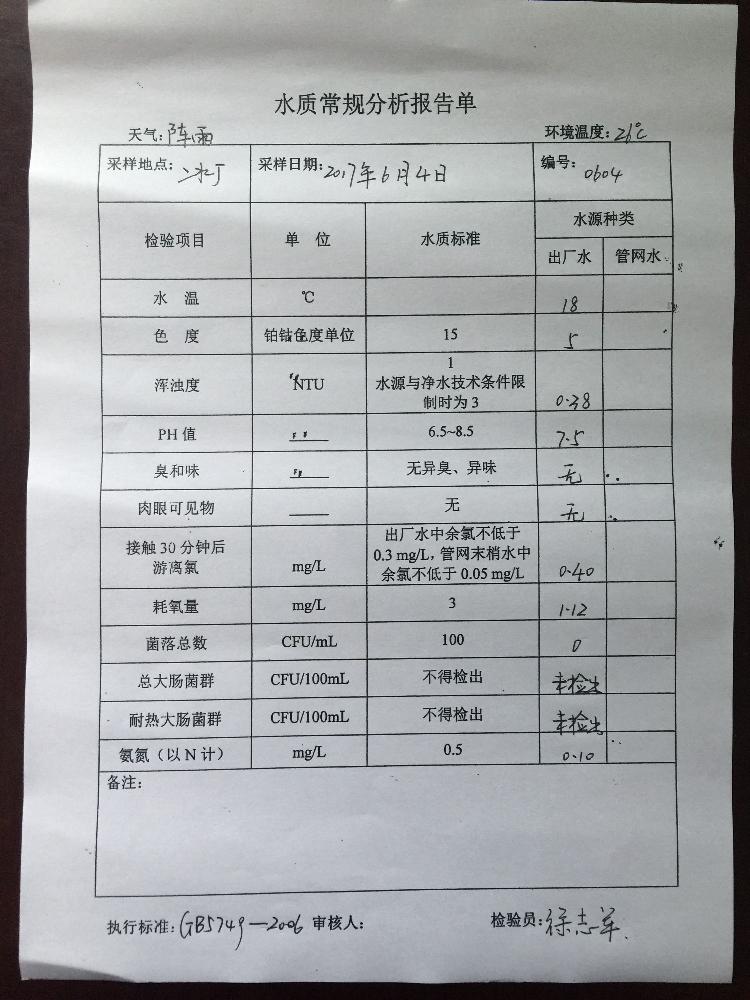 水质常规分析报告单
天气:阵雨 环境温度:26℃
采样地点: 采样日期:2017年6月4日 编号:0604
检验项目 单 位 水质标准 水源种类
出厂水 管网水
水 温 ℃ 18
色 度 铂钴色度单位 15 5
浑浊度 NTU 1
水源与净水技术条件限
制时为3 0.38
PH值 —— 6.5~8.5 7.5
臭和味 —— 无异臭、异味 无
肉眼可见物 —— 无 无
接触30分钟后
游离氯 mg/L 出厂水中余氯不低于
0.3 mg/L,管网末梢水中
余氯不低于0.05 mg/L 0.40
耗氧量 mg/L 3 1.12
菌落总数 CFU/mL 100 0
总大肠菌群 CFU/100mL 不得检出 未检出
耐热大肠菌群 CFU/100mL 不得检出 未检出
氨氮(以N计) mg/L 0.5 0.10
备注:
执行标准:GB5749—2006 审核人: 检验员:徐志军